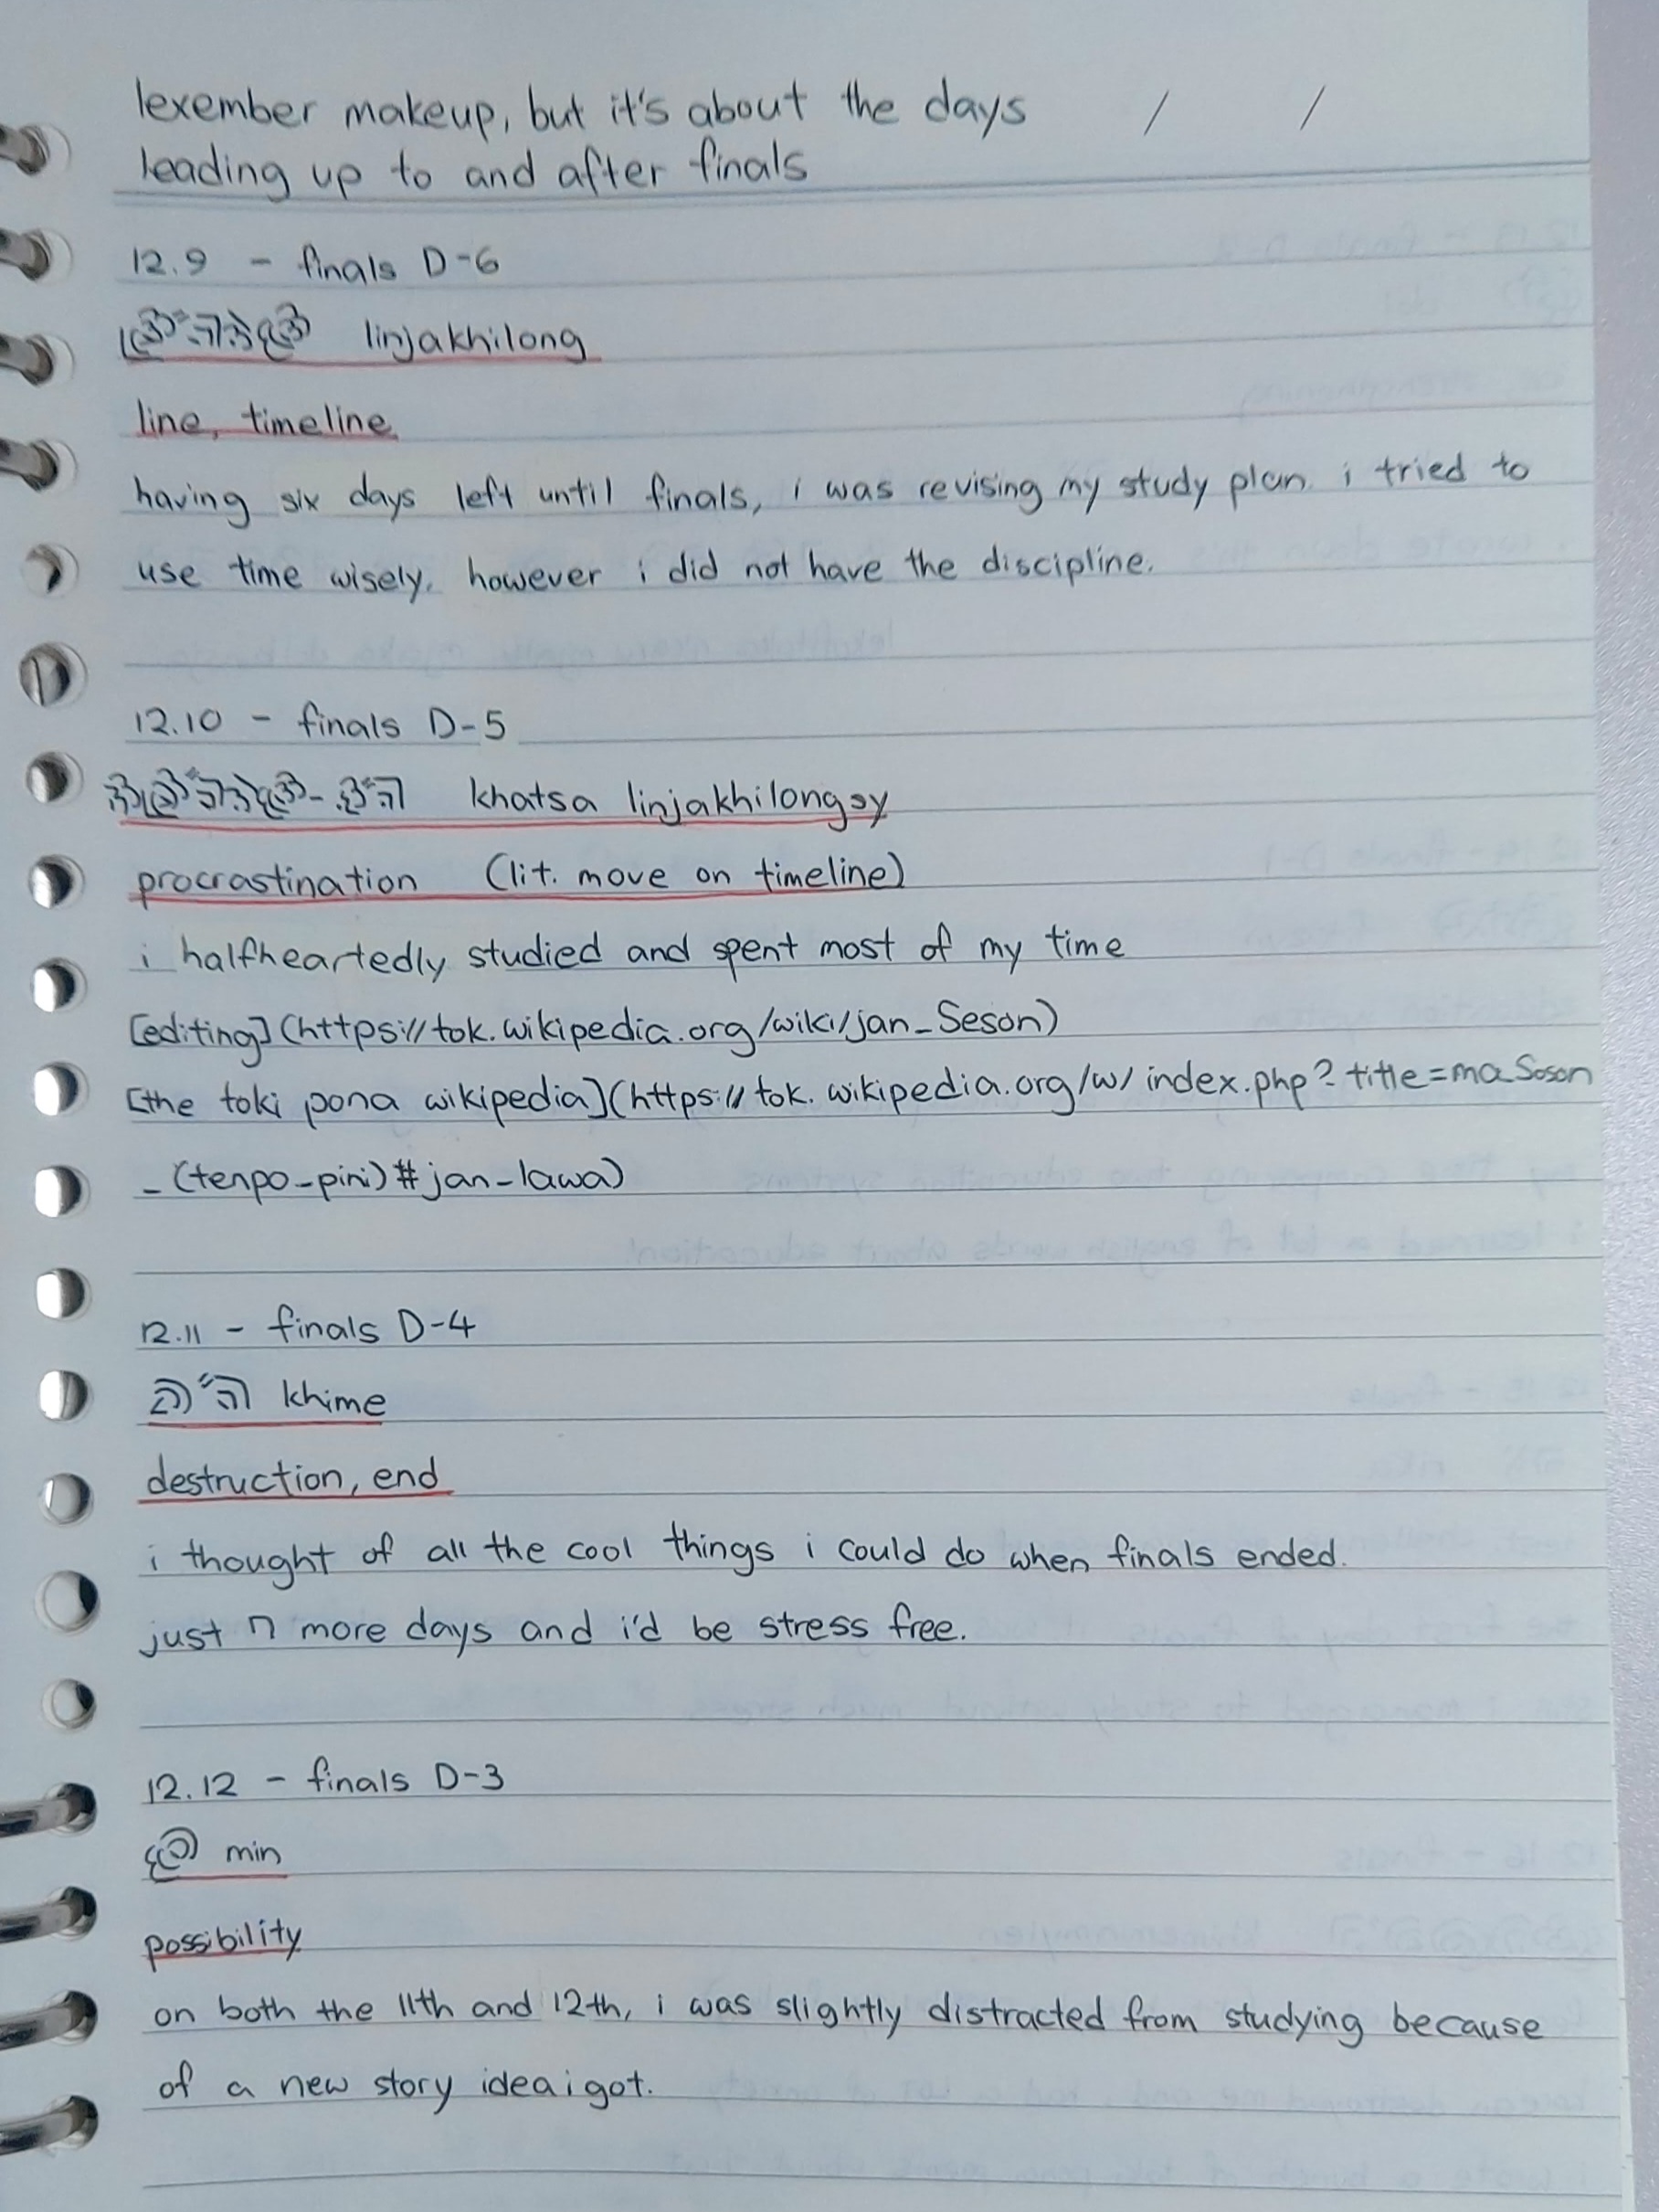 lexember makeup, but it's about the days / /
leading up to and after finals
12.9 - finals D-6
linjakhilong
line, timeline
having six days left until finals, i was revising my study plan. i tried to
use time wisely. however i did not have the discipline.
12.10 - finals D-5
khatsa linjakhilongsy
procrastination (lit. move on timeline)
i halfheartedly studied and spent most of my time
[editing](https://tok.wikipedia.org/wiki/jan_Seson)
[the toki pona wikipedia](https://tok.wikipedia.org/w/index.php?title=ma_Soson
_(tenpo_pini)#jan_lawa)
12.11 - finals D-4
khime
destruction, end
i thought of all the cool things i could do when finals ended.
just 7 more days and i'd be stress free.
12.12 - finals D-3
min
possibility
on both the 11th and 12th, i was slightly distracted from studying because
of a new story idea i got.